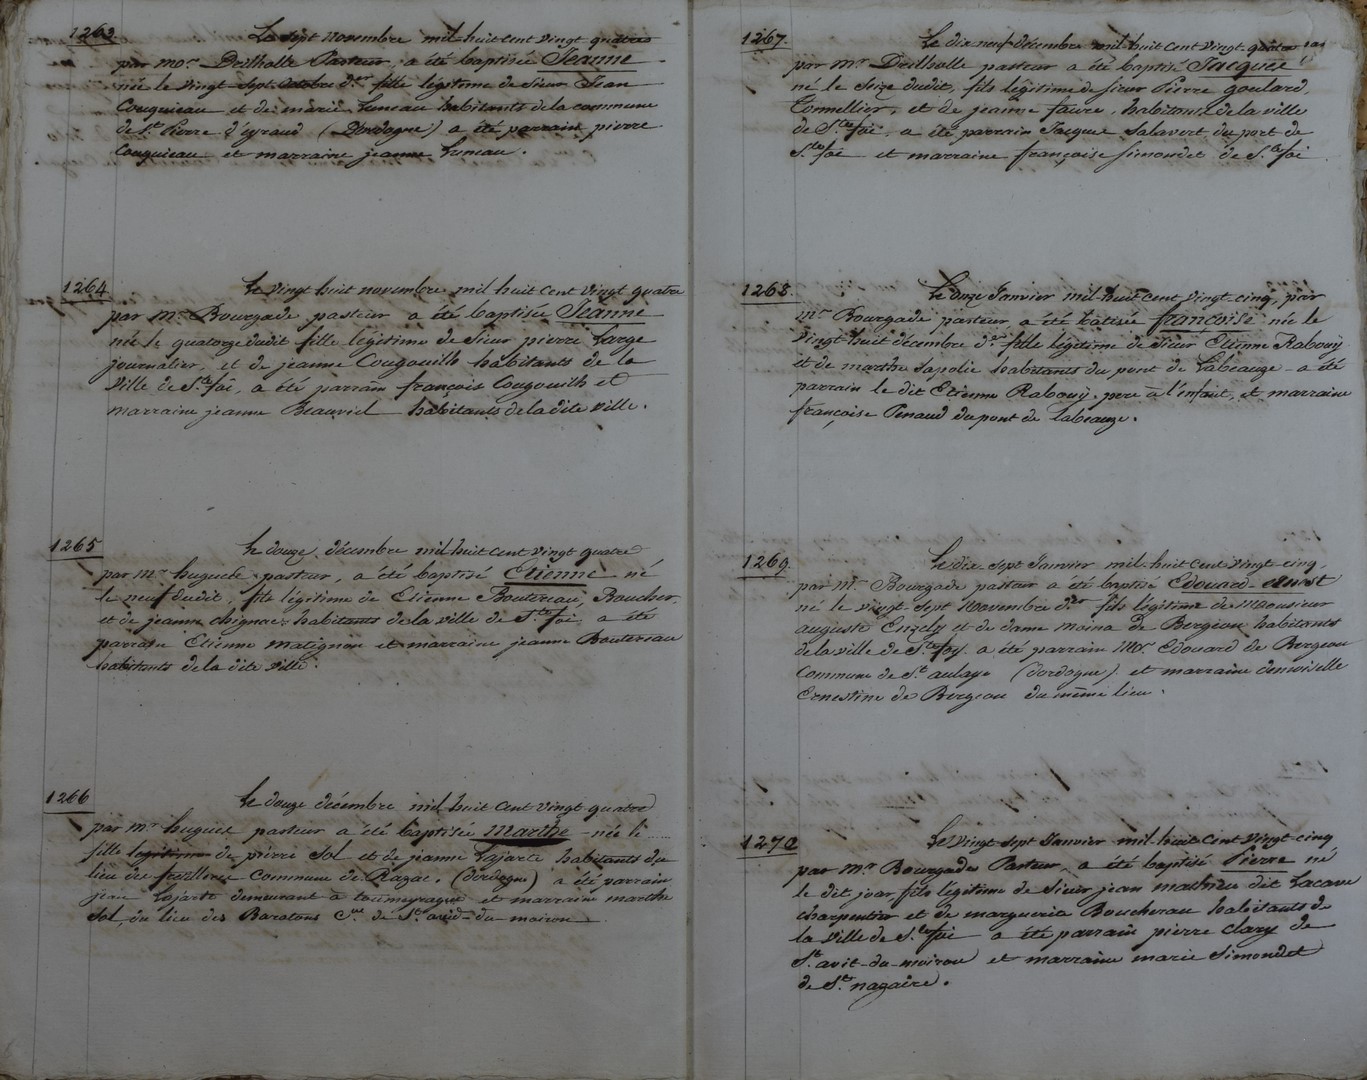 1263.
Le sept novembre mil huit cent vingt quatre
par mor. Drilholle Pasteur, a été baptisée Jeanne
née le vingt sept octobre der fille légitime de Sieur Jean
Couquieau et de marie Luneau habitants de la commune
de St. Pierre d'eyraud (Dordogne) a été parrain pierre
Couquieau et marraine jeanne Luneau.
1264
Le vingt huit novembre mil huit cent vingt quatre
par mr. Bourgade pasteur a été baptisée Jeanne
née le quatorze dudit fille légitime de Sieur pierre Large
journalier, et de jeanne Cougouilh habitants de la
ville de Ste foi, a été parrain françois Cougouilh et
marraine jeanne Beauviel habitants de la dite ville.
1265
Le douze décembre mil huit cent vingt quatre
par mr huguet pasteur, a été baptisé Etienne né
le neuf dudit, fils légitime de Etienne Boutereau, Boucher,
et de jeanne chignac, habitants de la ville de Ste foi a été
parrain Etienne matignon et marraine jeanne Boutereau
habitants de la dite ville.
1266
Le douze décembre mil huit cent vingt quatre
par mr huguet pasteur a été baptisée Marthe née le ......
fille légitime de pierre Sol et de jeanne Lajarte habitants du
lieu des fuzilleric commune de Razac, (dordogne) a été parrain
jean Lajarte demeurant à toumeyrague et marraine marthe
Sol, du lieu des Baratons Cne de St. avid-du-moiron
1267.
Le dix neuf décembre mil huit cent vingt quatre
par mr Drilholle pasteur a été baptisé Jacques
né le Seize dudit, fils légitime de sieur Pierre goulard,
Tonnellier, et de jeanne faure, habitans de la ville
de Ste foi, a été parrain Jacques Salavert du port de
Ste foi et marraine françoise Simondet de Ste foi
1268.
Le douze Janvier mil huit cent vingt cinq, par
mr Bourgade pasteur a été batisée françoise née le
vingt huit décembre der fille légitime de Sieur Etienne Rabouÿ
et de marthe Lapolie habitants du pont de Labeauze a été
parrain le dit Etienne Rabouÿ, pere à l'enfant, et marraine
françoise Penaud du pont de Labeauze.
1269
Le dix-sept Janvier mil huit cent vingt cinq,
par Mr. Bourgade pasteur a été baptisé Edouard
né le vingt sept Novembre der fils légitime de Monsieur
auguste Enzely et de dame Moina de Bergeau habitants
de la ville de Ste foy. a été parrain Mor. Edouard de Bergeau
Commune de St. aulaye (dordogne) et marraine demoiselle
Ernestine de Bergeau du même lieu.
1270
Le vingt sept Janvier mil huit cent vingt cinq
par mr. Bourgade Pasteur, a été baptisé Pierre né
le dit jour, fils légitime de Sieur jean mathieu dit Lacave
charpentier et de marguerite Bouchereau habitants de
la ville de Ste foi a été parrain pierre clary de
St. avit-du-moiron et marraine marie Simondet
de St. nazaire.